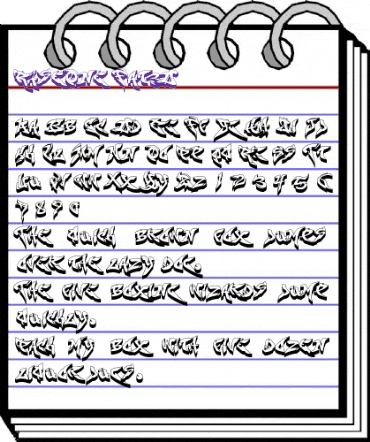 AA BB CC DD EE FF GG HH II JJ
KK LL MM NN OO PP QQ RR SS TT
UU VV WW XX YY ZZ 1 2 3 4 5 6
7 8 9 0
THE QUICK BROWN FOX JUMPS
OVER THE LAZY DOG.
THE FIVE BOXING WIZARDS JUMP
QUICKLY.
PACK MY BOX WITH FIVE DOZEN
LIQUOR JUGS.